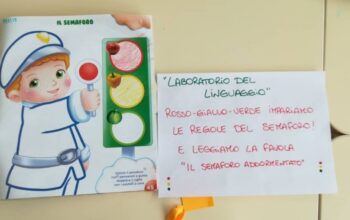 IL SEMAFORO
"LABORATORIO DEL
LINGUAGGIO"
ROSSO-GIALLO-VERDE IMPARIAMO
LE REGOLE DEL SEMAFORO!
E LEGGIAMO LA FAVOLA
"IL SEMAFORO ADDORMENTATO"